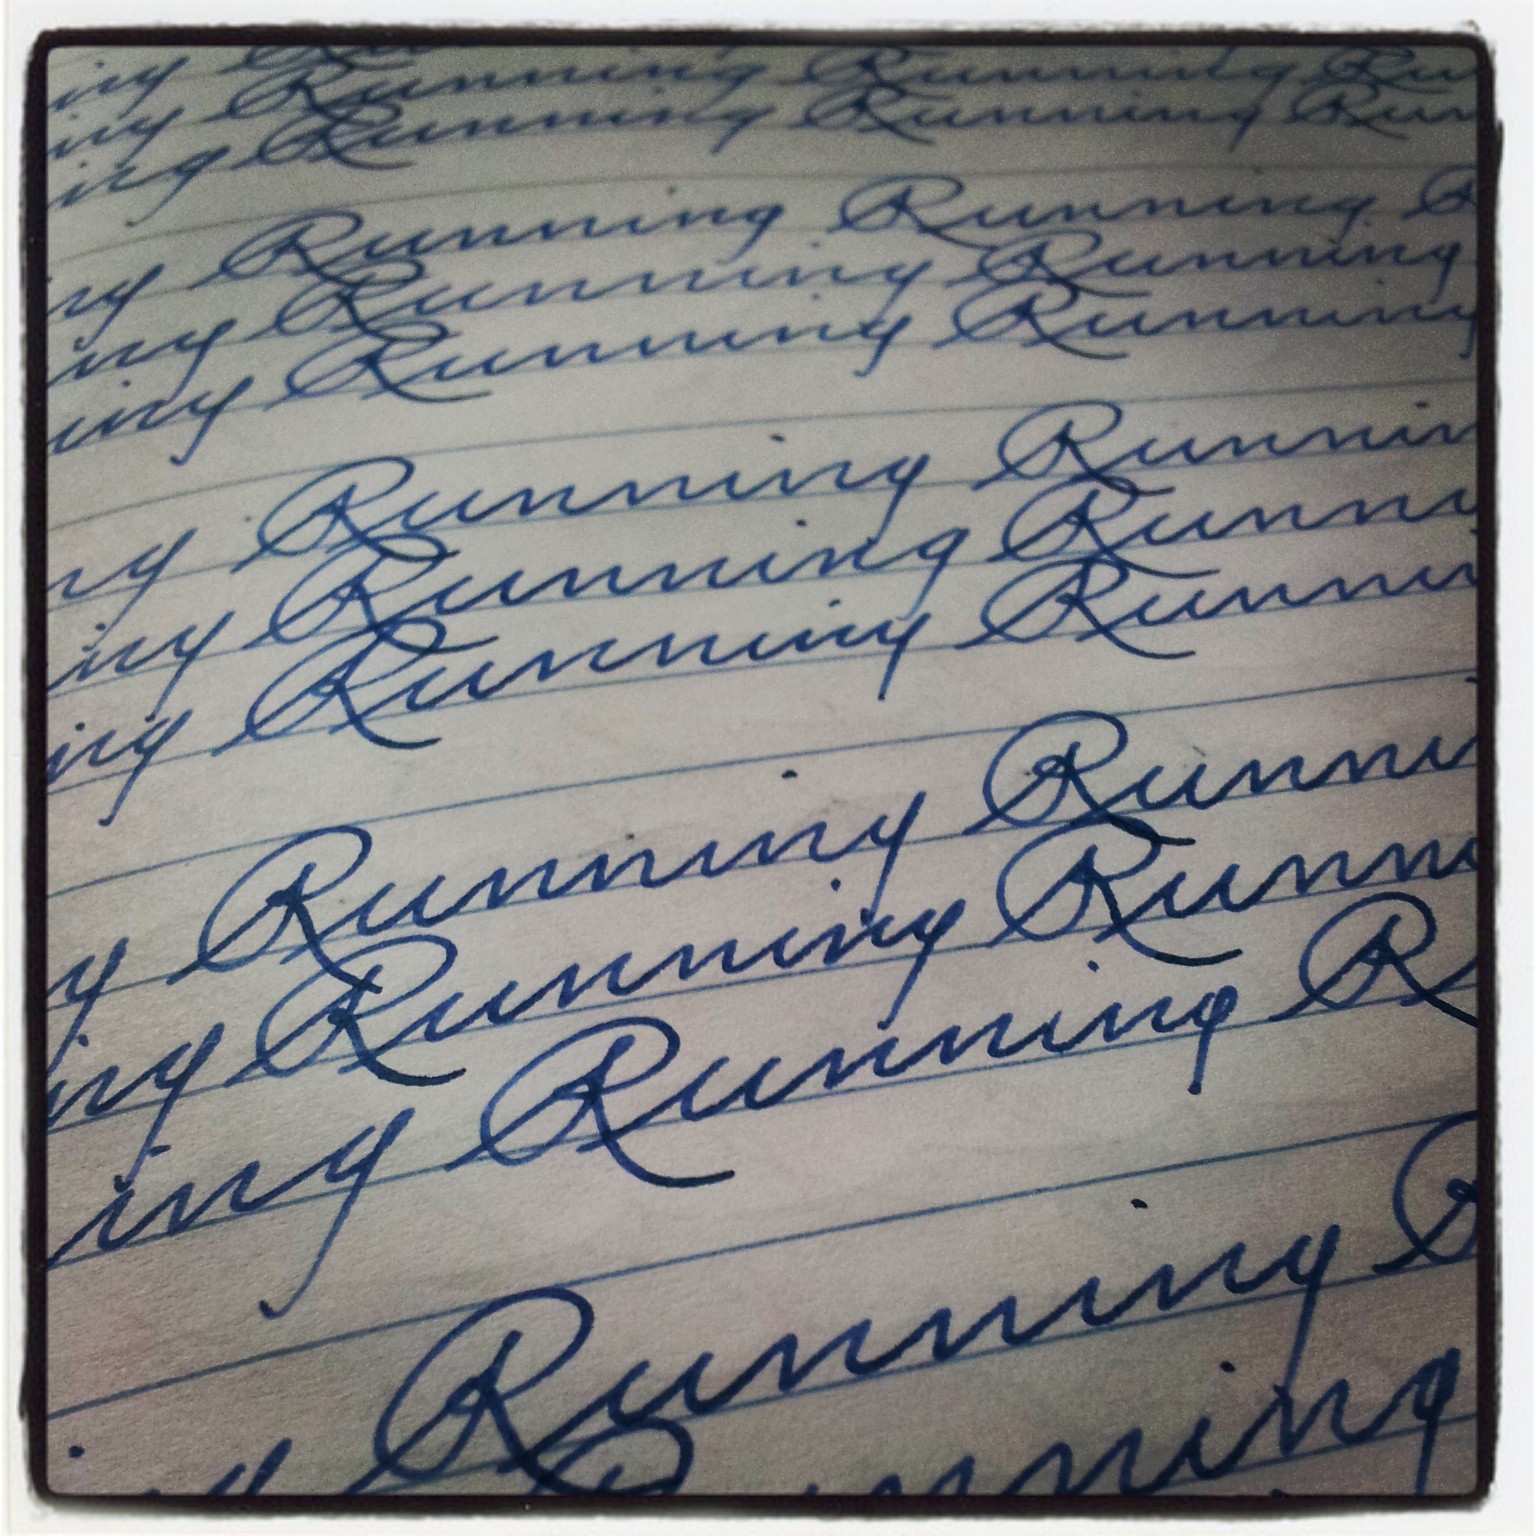 ing
ing Running Running Run
ing Running Running Run
ng Running Running R
ing Running Running
ing Running Running
ng Running Runnin
ing Running Runni
ing Running Runni
g Running Runni
ing Running Runni
ing Running R
Running R
g Running